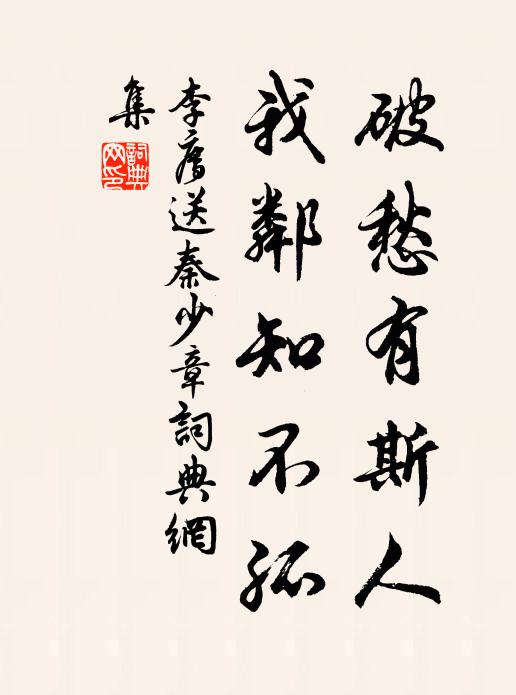 破愁有斯人
我鄰知不孤
李廌送秦少章詞典網
集
詞典網印